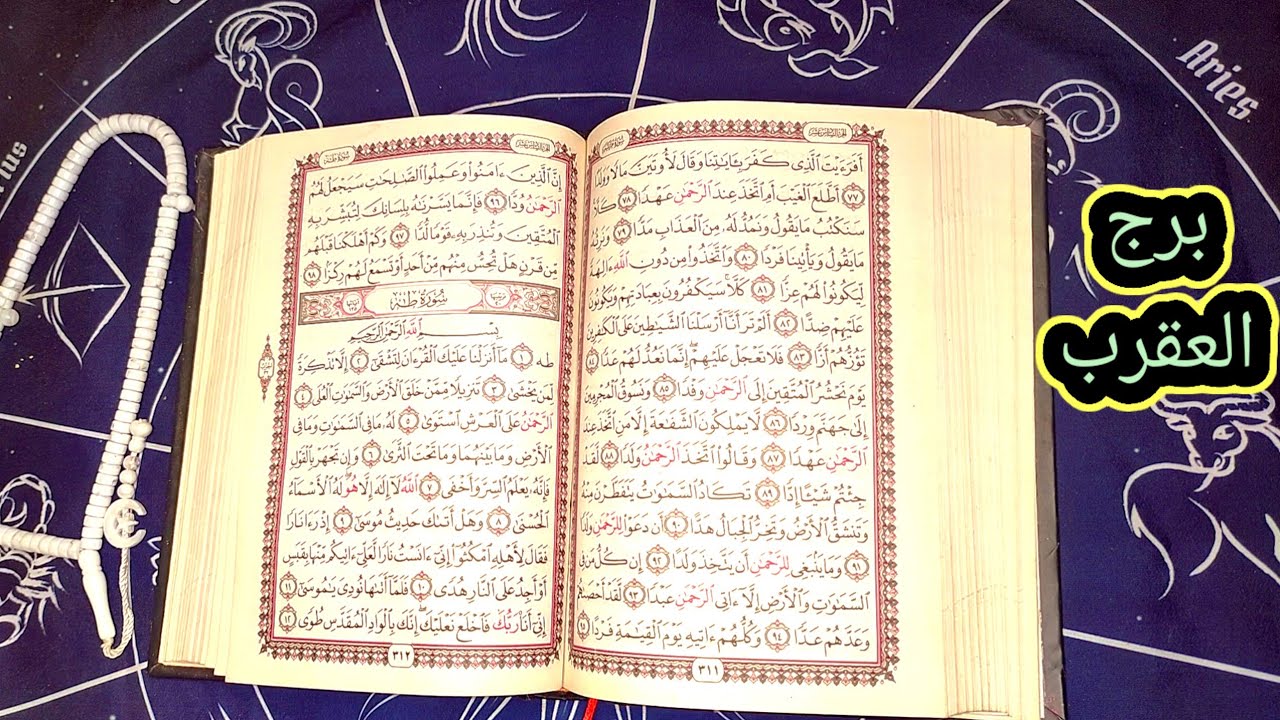 Aries
برج
العقرب
أَفَرَءَيْتَ ٱلَّذِى كَفَرَ بِـَٔايَٰتِنَا وَقَالَ لَأُوتَيَنَّ مَالًا وَوَلَدًا
٧٧ أَطَّلَعَ ٱلْغَيْبَ أَمِ ٱتَّخَذَ عِندَ ٱلرَّحْمَٰنِ عَهْدًا ٧٨ كَلَّا
سَنَكْتُبُ مَا يَقُولُ وَنَمُدُّ لَهُۥ مِنَ ٱلْعَذَابِ مَدًّا ٧٩ وَنَرِثُهُۥ
مَا يَقُولُ وَيَأْتِينَا فَرْدًا ٨٠ وَٱتَّخَذُوا۟ مِن دُونِ ٱللَّهِ ءَالِهَةً
لِّيَكُونُوا۟ لَهُمْ عِزًّا ٨١ كَلَّا سَيَكْفُرُونَ بِعِبَادَتِهِمْ وَيَكُونُونَ
عَلَيْهِمْ ضِدًّا ٨٢ أَلَمْ تَرَ أَنَّآ أَرْسَلْنَا ٱلشَّيَٰطِينَ عَلَى ٱلْكَٰفِرِينَ
تَؤُزُّهُمْ أَزًّا ٨٣ فَلَا تَعْجَلْ عَلَيْهِمْ إِنَّمَا نَعُدُّ لَهُمْ عَدًّا ٨٤
يَوْمَ نَحْشُرُ ٱلْمُتَّقِينَ إِلَى ٱلرَّحْمَٰنِ وَفْدًا ٨٥ وَنَسُوقُ ٱلْمُجْرِمِينَ
إِلَىٰ جَهَنَّمَ وِرْدًا ٨٦ لَّا يَمْلِكُونَ ٱلشَّفَٰعَةَ إِلَّا مَنِ ٱتَّخَذَ عِندَ
ٱلرَّحْمَٰنِ عَهْدًا ٨٧ وَقَالُوا۟ ٱتَّخَذَ ٱلرَّحْمَٰنُ وَلَدًا ٨٨ لَّقَدْ
جِئْتُمْ شَيْـًٔا إِدًّا ٨٩ تَكَادُ ٱلسَّمَٰوَٰتُ يَتَفَطَّرْنَ مِنْهُ
وَتَنشَقُّ ٱلْأَرْضُ وَتَخِرُّ ٱلْجِبَالُ هَدًّا ٩٠ أَن دَعَوْا۟ لِلرَّحْمَٰنِ وَلَدًا
٩١ وَمَا يَنۢبَغِى لِلرَّحْمَٰنِ أَن يَتَّخِذَ وَلَدًا ٩٢ إِن كُلُّ مَن فِى
ٱلسَّمَٰوَٰتِ وَٱلْأَرْضِ إِلَّآ ءَاتِى ٱلرَّحْمَٰنِ عَبْدًا ٩٣ لَّقَدْ أَحْصَىٰهُمْ
وَعَدَّهُمْ عَدًّا ٩٤ وَكُلُّهُمْ ءَاتِيهِ يَوْمَ ٱلْقِيَٰمَةِ فَرْدًا ٩٥
٣١١
إِنَّ ٱلَّذِينَ ءَامَنُوا۟ وَعَمِلُوا۟ ٱلصَّٰلِحَٰتِ سَيَجْعَلُ لَهُمُ
ٱلرَّحْمَٰنُ وُدًّا ٩٦ فَإِنَّمَا يَسَّرْنَٰهُ بِلِسَانِكَ لِتُبَشِّرَ بِهِ
ٱلْمُتَّقِينَ وَتُنذِرَ بِهِۦ قَوْمًا لُّدًّا ٩٧ وَكَمْ أَهْلَكْنَا قَبْلَهُم
مِّن قَرْنٍ هَلْ تُحِسُّ مِنْهُم مِّنْ أَحَدٍ أَوْ تَسْمَعُ لَهُمْ رِكْزًۢا ٩٨
سُورَةُ طه
بِسْمِ ٱللَّهِ ٱلرَّحْمَٰنِ ٱلرَّحِيمِ
طه ١ مَآ أَنزَلْنَا عَلَيْكَ ٱلْقُرْءَانَ لِتَشْقَىٰٓ ٢ إِلَّا تَذْكِرَةً
لِّمَن يَخْشَىٰ ٣ تَنزِيلًا مِّمَّنْ خَلَقَ ٱلْأَرْضَ وَٱلسَّمَٰوَٰتِ ٱلْعُلَى ٤
ٱلرَّحْمَٰنُ عَلَى ٱلْعَرْشِ ٱسْتَوَىٰ ٥ لَهُۥ مَا فِى ٱلسَّمَٰوَٰتِ وَمَا فِى
ٱلْأَرْضِ وَمَا بَيْنَهُمَا وَمَا تَحْتَ ٱلثَّرَىٰ ٦ وَإِن تَجْهَرْ بِٱلْقَوْلِ
فَإِنَّهُۥ يَعْلَمُ ٱلسِّرَّ وَأَخْفَى ٧ ٱللَّهُ لَآ إِلَٰهَ إِلَّا هُوَ لَهُ ٱلْأَسْمَآءُ
ٱلْحُسْنَىٰ ٨ وَهَلْ أَتَىٰكَ حَدِيثُ مُوسَىٰٓ ٩ إِذْ رَءَا نَارًا
فَقَالَ لِأَهْلِهِ ٱمْكُثُوٓا۟ إِنِّىٓ ءَانَسْتُ نَارًا لَّعَلِّىٓ ءَاتِيكُم مِّنْهَا بِقَبَسٍ
أَوْ أَجِدُ عَلَى ٱلنَّارِ هُدًى ١٠ فَلَمَّآ أَتَىٰهَا نُودِىَ يَٰمُوسَىٰٓ ١١
إِنِّىٓ أَنَا۠ رَبُّكَ فَٱخْلَعْ نَعْلَيْكَ إِنَّكَ بِٱلْوَادِ ٱلْمُقَدَّسِ طُوًى ١٢
٣١٢